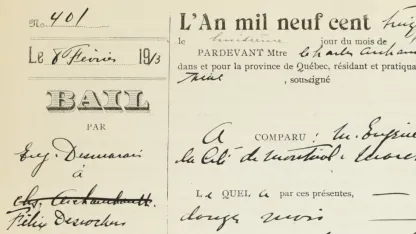 No. 401
Le 8 Février 1913
BAIL
PAR
Eug. Desmarais
à
chs. Archambault.
Félix Desrochers
L'An mil neuf cent
le huitième jour du mois de
PARDEVANT Mtre Charles Archam
dans et pour la province de Québec, résidant et pratiqua
, soussigné
A COMPARU : M. Eugène
la Cité de Montréal
LEQUEL a par ces présentes,
douze mois